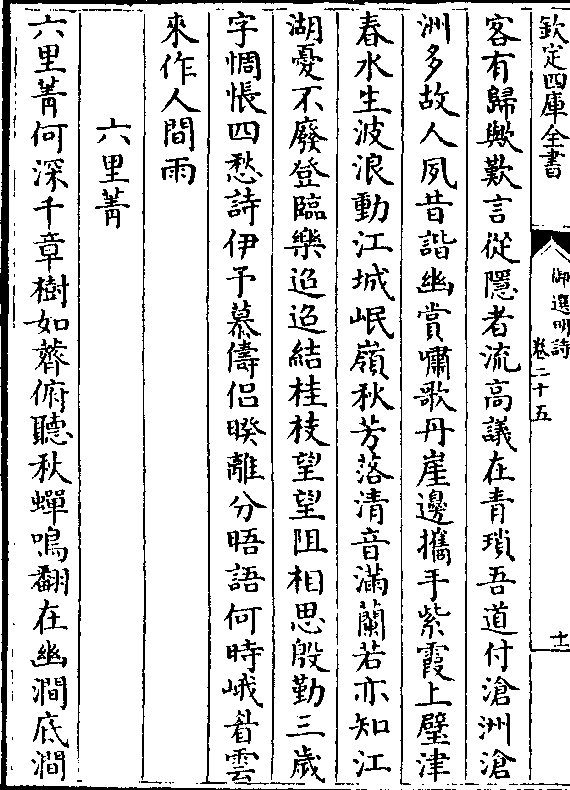 欽定四庫全書
御選明詩
卷二十五
十
客有歸歟歎言從隱者流高議在青瑣吾道付滄洲滄
洲多故人夙昔諧幽賞嘯歌丹崖邊攜手紫霞上璧津
春水生波浪動江城岷嶺秋芳落清音滿蘭若亦知江
湖憂不廢登臨樂迢迢結桂枝望望阻相思殷勤三歲
字惆悵四愁詩伊予慕儔侶暌離分晤語何時峨眉雲
來作人間雨
六里菁
六里菁何深千章樹如薺俯聽秋蟬鳴翻在幽澗底澗